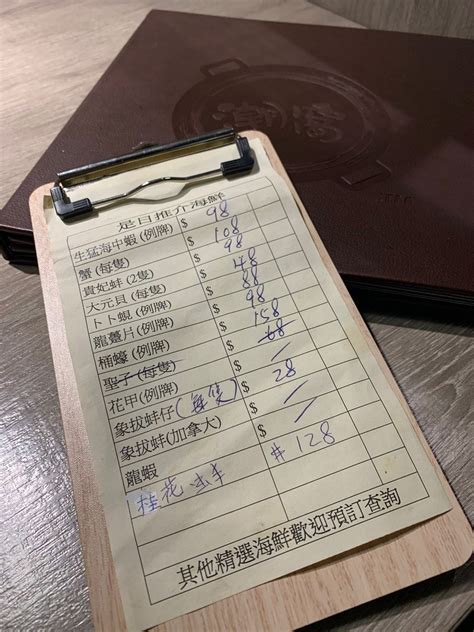 是日推介海鮮
生猛海中蝦 (例牌) $ 98
蟹 (每隻) $ 108
貴妃蚌 (2隻) $ 98
大元貝 (每隻) $ 48
卜卜蜆 (例牌) $ 88
龍躉片 (例牌) $ 98
桶蠔 (例牌) $ 158
聖子 (每隻) $ 68
花甲(例牌) $
象拔蚌仔 (每隻) $ 28
象拔蚌(加拿大) $
龍蝦
桂花蚌 $ 128
其他精選海鮮歡迎預訂查詢